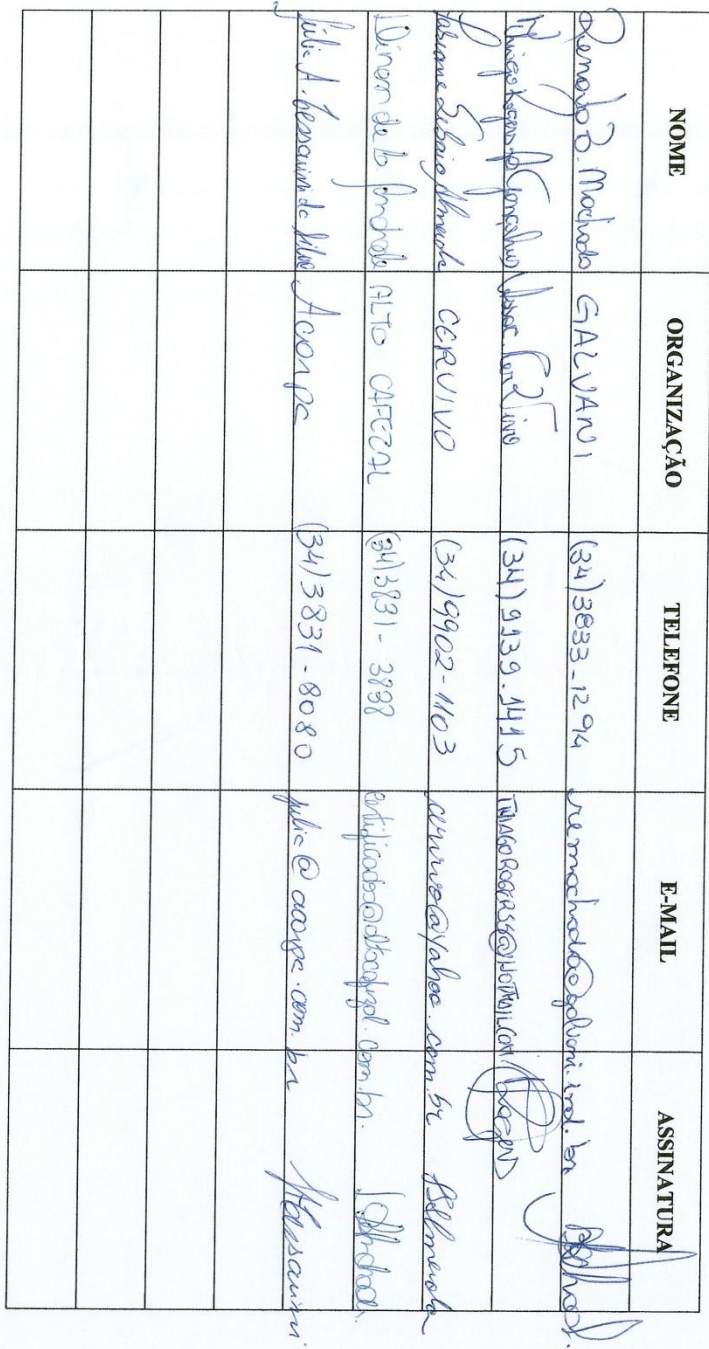 NOME ORGANIZAÇÃO TELEFONE E-MAIL ASSINATURA
Renato B. Machado GALVANI (34)3833-1294 remachado@galvani.ind.br
Thiago Rogers Gonçalves (34)9139.1415 THIAGOROGERS86@HOTMAIL.COM Rogers
Fabiane Almeida CERVIVO (34)9902-1103 cervivo@yahoo.com.br FSAlmeida
de Andrade ALTO CAFEZAL (34)3831-3838 certificados@altocafezal.com.br. Andrade
Júlia A. da Silva Acarpa (34)3831-8080 julia@acarpa.com.br